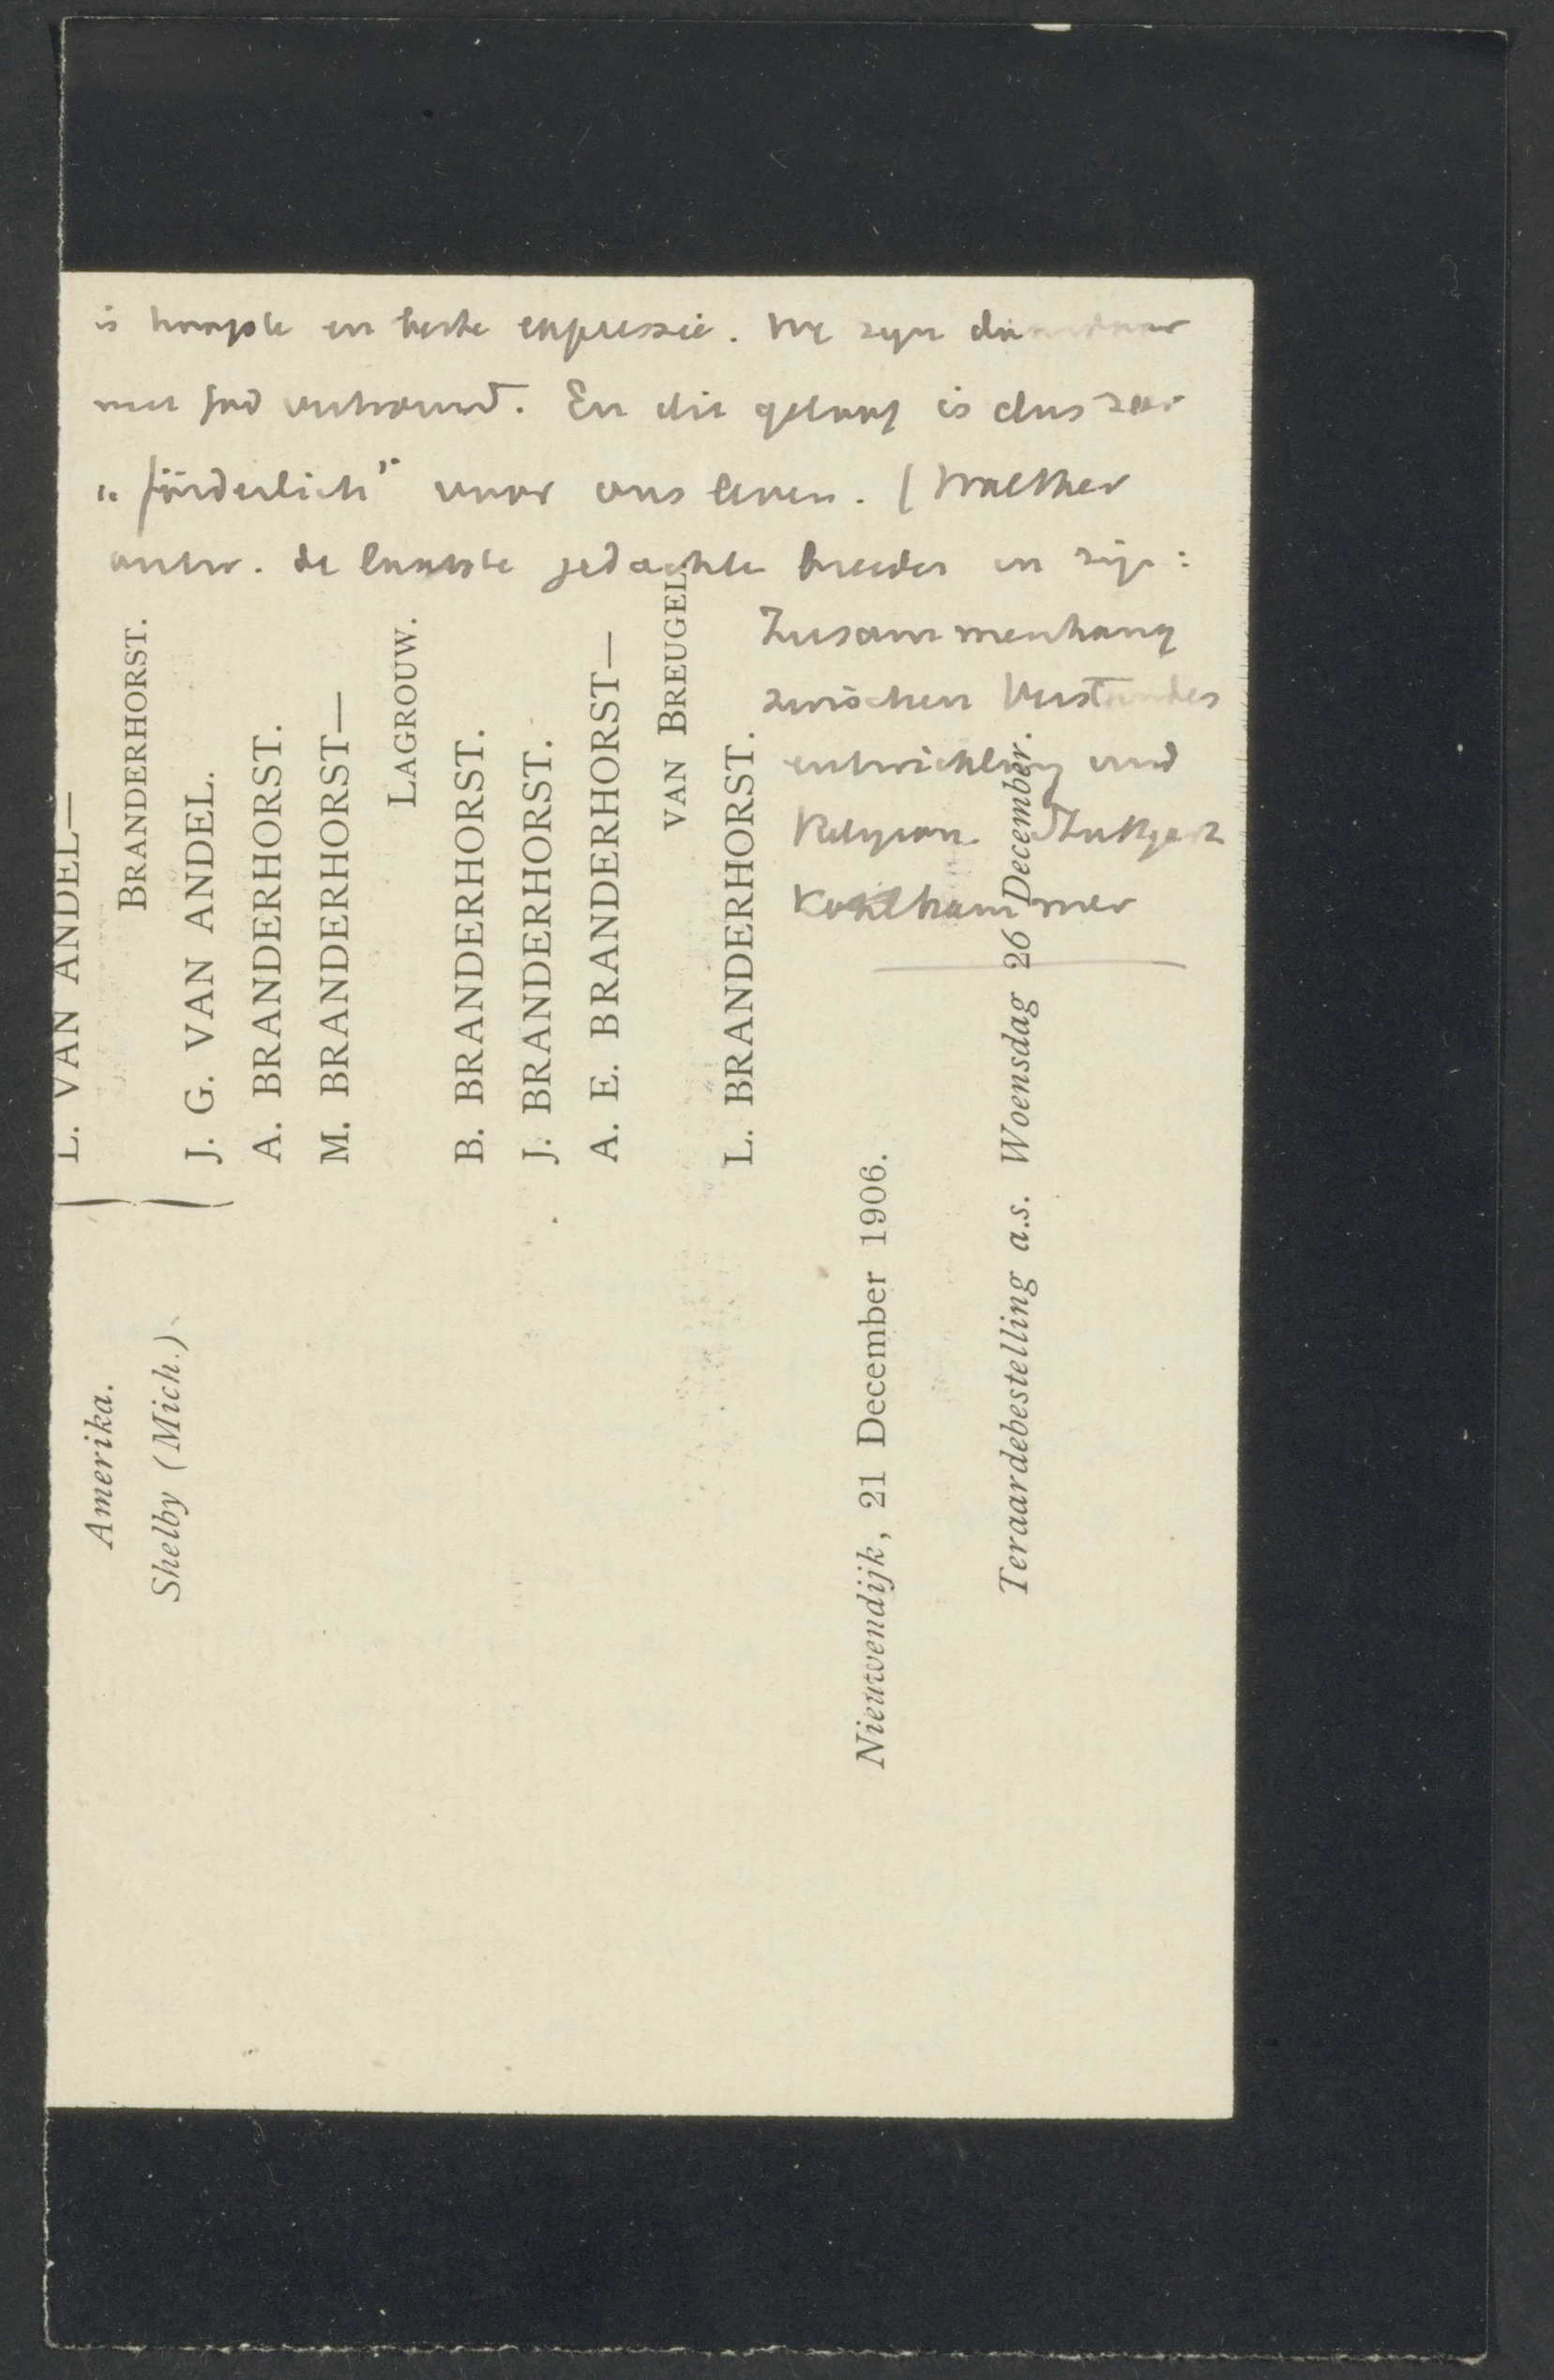 is hoogste en beste expressie. We zyn daardoor
met God vertrouwd. En dit geloof is dus zeer
"förderlich" voor ons leven. (Walther
ontw. de laatste gedachte breeder in zijn:
Zusammenhang
zwischen Verstandes
entwicklung und
Religion. Stuttgart
Kohlhammer
L. VAN ANDEL—
BRANDERHORST.
J. G. VAN ANDEL.
Amerika.
Shelby (Mich.)
A. BRANDERHORST.
M. BRANDERHORST—
LAGROUW.
B. BRANDERHORST.
J. BRANDERHORST.
A. E. BRANDERHORST—
VAN BREUGEL.
L. BRANDERHORST.
Nieuwendijk, 21 December 1906.
Teraardebestelling a.s. Woensdag 26 December.